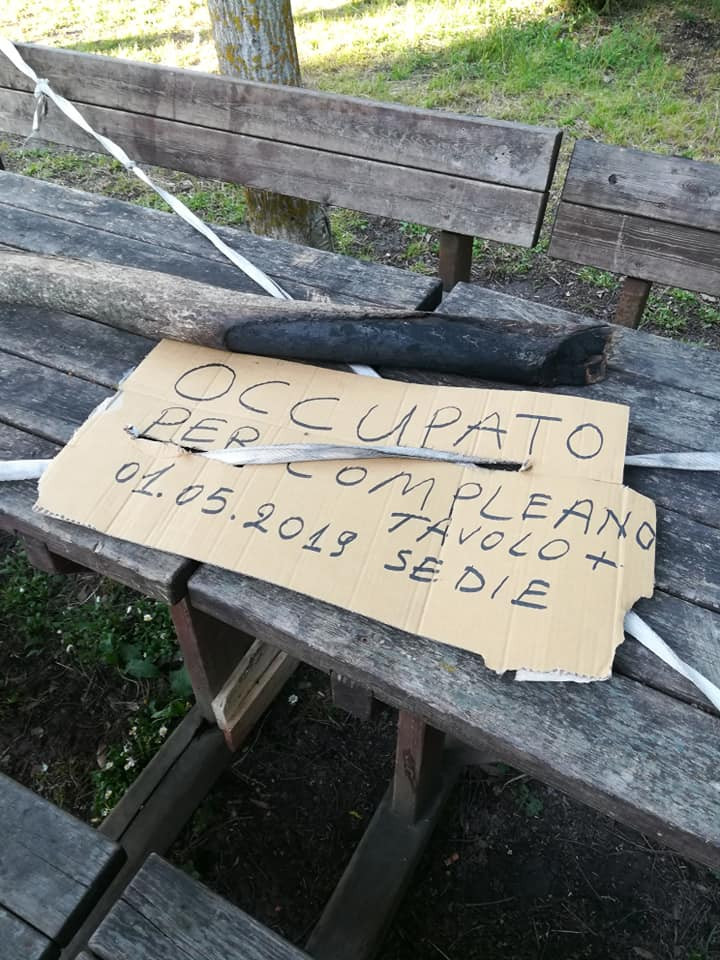 OCCUPATO
PER COMPLEANO
01.05.2019 TAVOLO +
SEDIE